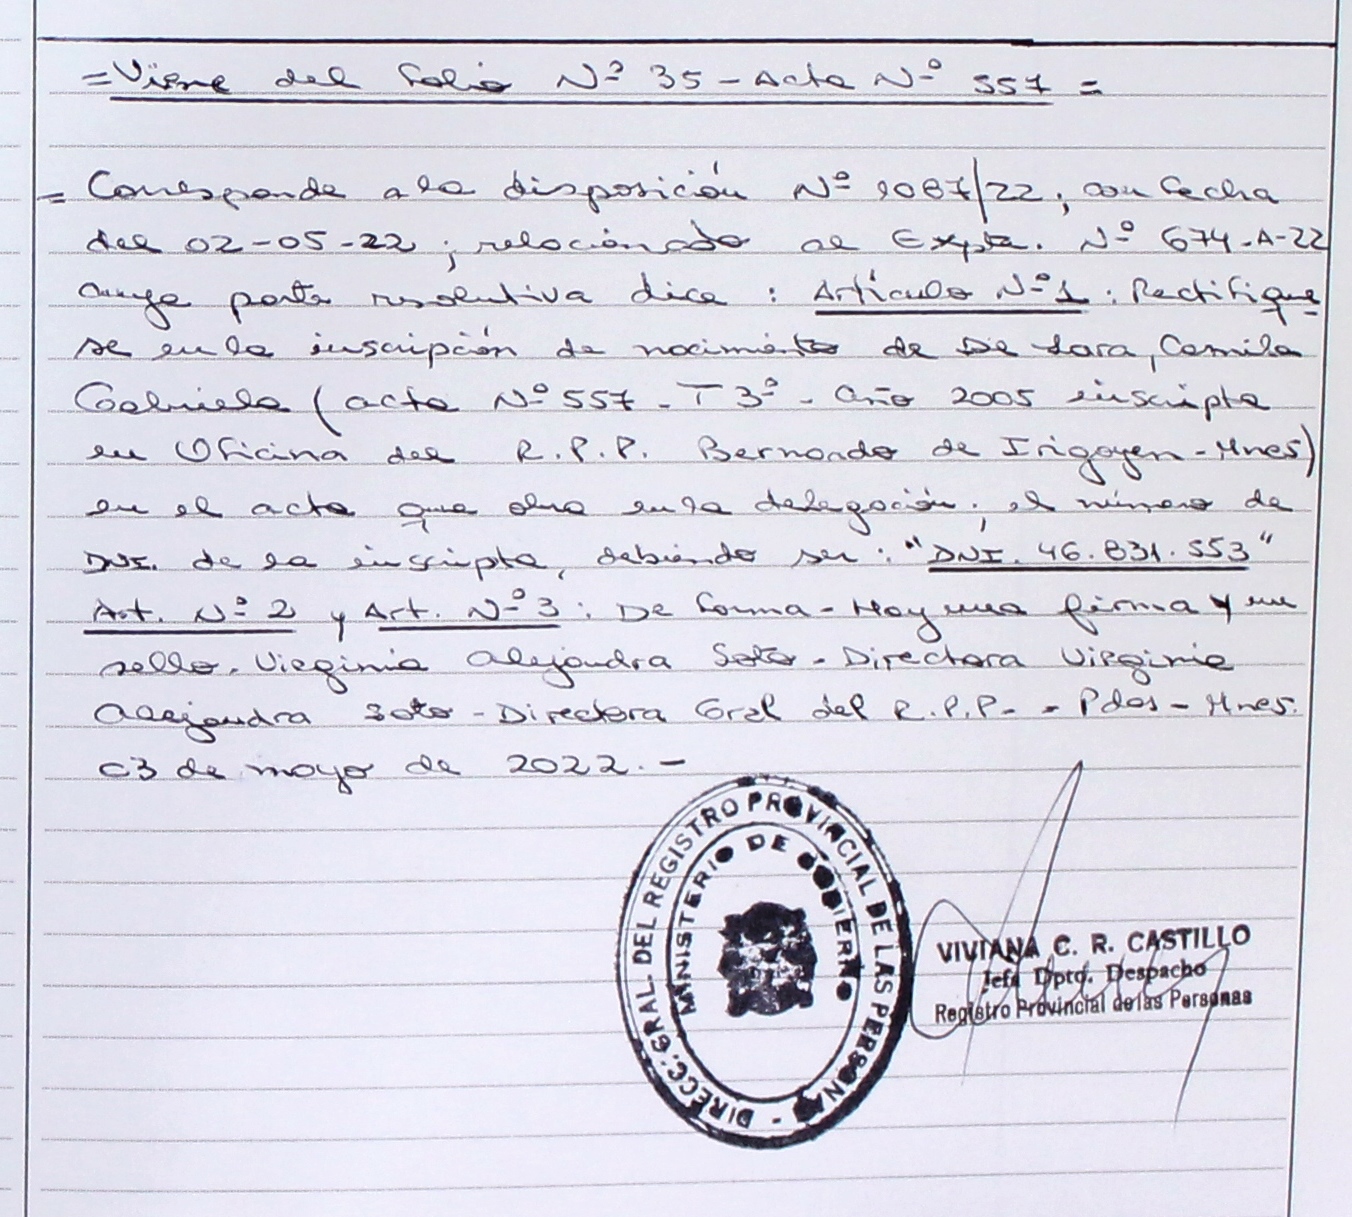 =Viene del folio Nº 35 - Acta Nº 557 =
= Corresponde a la disposición Nº 1087/22; con fecha
del 02-05-22; relacionado al Expte. Nº 674-A-22
cuya parte resolutiva dice: Artículo Nº1: Rectifíque
se en la inscripción de nacimiento de De Lara, Camila
Gabriela (acta Nº 557 - T 3º - Año 2005 inscripta
en Oficina del R.P.P. Bernardo de Irigoyen - Mnes)
en el acta que obra en la delegación; el número de
DNI. de la inscripta, debiendo ser: "DNI. 46.831.553"
Art. Nº 2 y Art. Nº 3: De forma - Hay una firma y un
sello. Virginia Alejandra Soto - Directora Virginia
Alejandra Soto - Directora Gral del R.P.P. - Pdas - Mnes.
03 de mayo de 2022.-
DIRECC. GRAL. DEL REGISTRO PROVINCIAL DE LAS PERSONAS -
MINISTERIO DE GOBIERNO
VIVIANA C. R. CASTILLO
Jefa Dpto. Despacho
Registro Provincial de las Personas